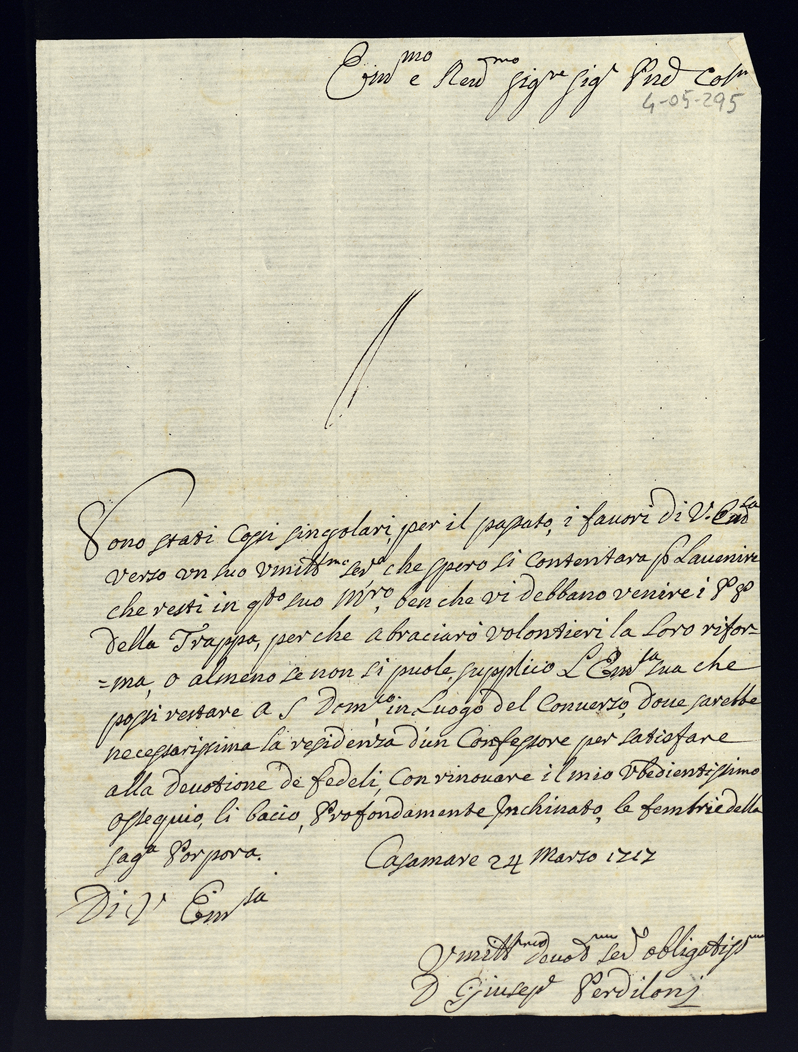 Em^mo e Reud^mo Sig^re Sig^r Pne Col^mo
4-05-295
Sono stati cosi singolari, per il passato, i fauori di V. Em^za
verso vn suo vmilt^mo ser^e che spero si contentara p Lauenire
che resti in q^sto suo M^ro, ben che vi debbano venire i P P
della Trappa, per che abraciarò volontieri la loro rifor-
=ma, o almeno se non si puole, supplico L'Em^za sua che
possi restare a S Dom^co in Luogo del Conuerso, doue sarebbe
necessarissima la residenza d'un Confessore per satisfare
alla deuotione de fedeli, con rinouare il mio vbedientissimo
ossequio, li bacio, Profondamente Inchinato, le fembrie della
sag^a Porpora. Casamare 24 Marzo 1717
Di V^a Em^za
Vmilt^mo deuot^mo ser^e obligatiss^mo
D Giusep^e Perdiloni